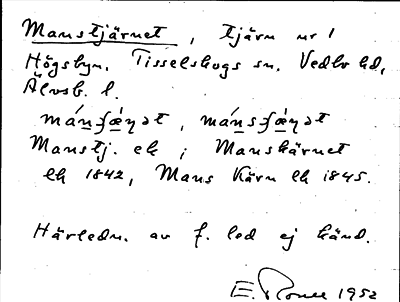 Manstjärnet, tjärn nr 1
Högsbyn. Tisselskogs sn. Vedbo hd,
Älvsb. l.
mánʃæ̀ɳət, mánsʃæ̀ɳət
Manstj. ek ; Manskärnet
lk 1842, Mans Kärn lk 1845.
Härledn. av f. led ej känd.
E. 1952